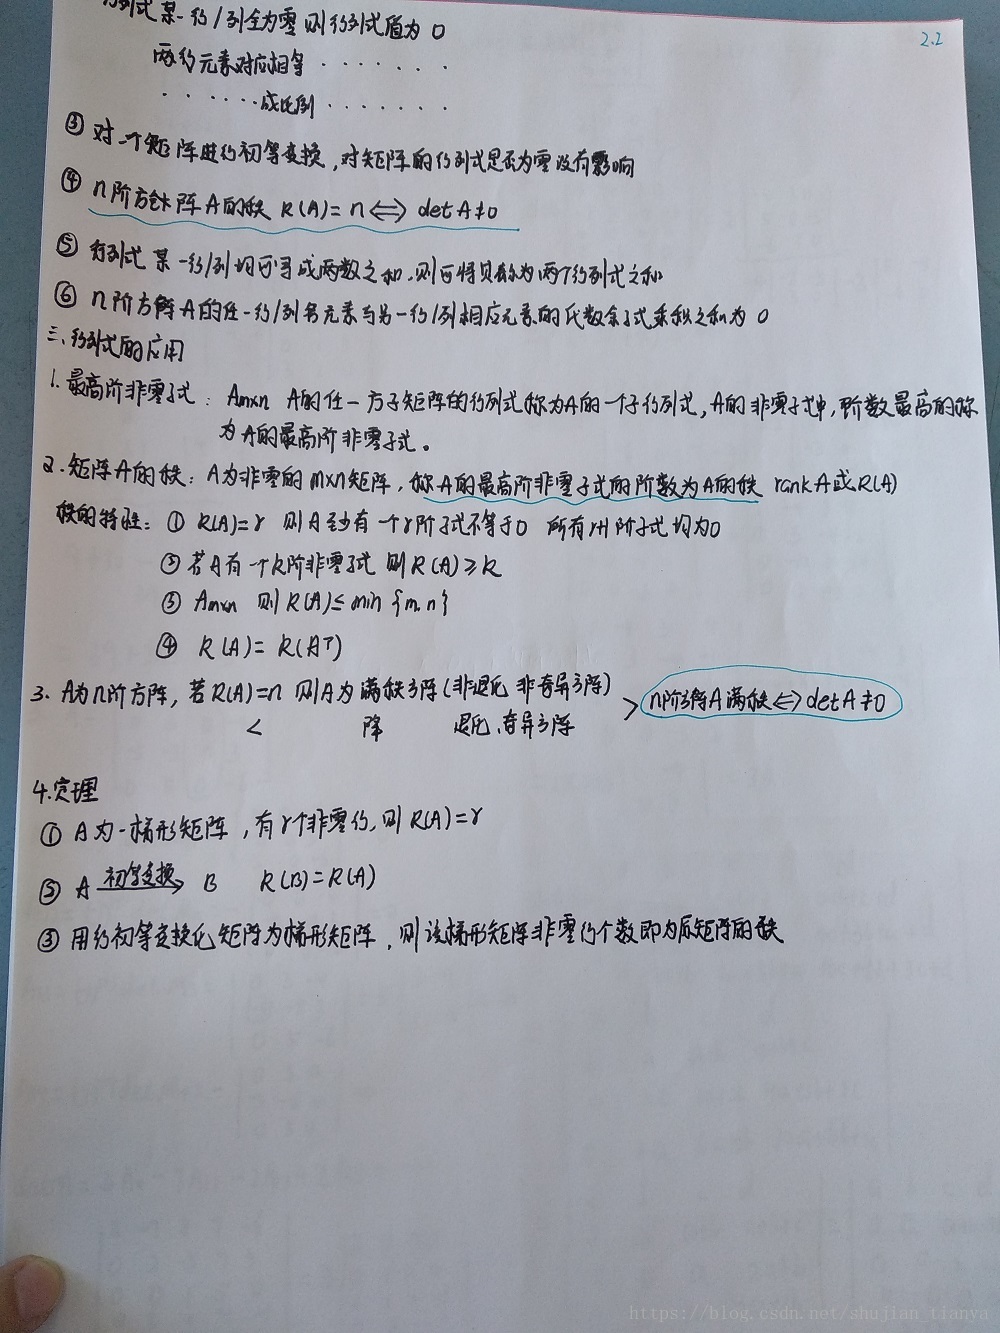 行列式某一行/列全为零则行列式值为0
2.2
两行元素对应相等·······
······成比例·······
③ 对一个矩阵进行初等变换,对矩阵的行列式是否为零没有影响
④ n阶方阵A的秩 R(A)=n⟺detA≠0
⑤ 行列式某一行/列均可写成两数之和,则可将其称为两个行列式之和
⑥ n阶方阵A的任一行/列各元素与另一行/列相应元素的代数余子式乘积之和为0
三、行列式的应用
1. 最高阶非零子式: Amxn A的任一方子矩阵的行列式称为A的一个子行列式,A的非零子式中,阶数最高的称
为A的最高阶非零子式。
2. 矩阵A的秩: A为非零的mxn矩阵,称A的最高阶非零子式的阶数为A的秩 rankA或R(A)
秩的特性: ① R(A)=r 则A至少有一个r阶子式不等于0 所有r+1阶子式均为0
② 若A有一个k阶非零子式 则R(A)≥k
③ Amxn 则R(A)≤min{m,n}
④ R(A)=R(Aᵀ)
3. A为n阶方阵,若R(A)=n 则A为满秩方阵(非退化 非奇异方阵)
< 降 退化、奇异方阵
> n阶方阵A满秩⟺detA≠0
4.定理
① A为一梯形矩阵,有r个非零行,则R(A)=r
② A 初等变换→ B R(B)=R(A)
③ 用行初等变换化矩阵为梯形矩阵,则该梯形矩阵非零行个数即为原矩阵的秩
https://blog.csdn.net/shujian_tianya